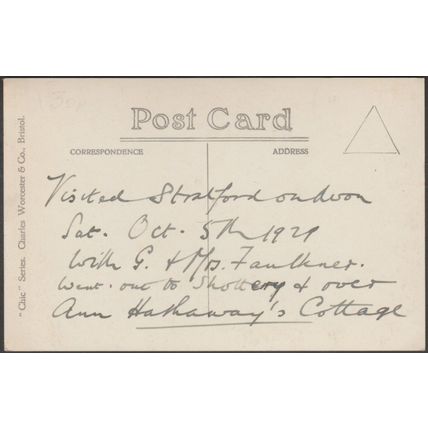 30p
Post Card
CORRESPONDENCE
ADDRESS
"Chic" Series. Charles Worcester & Co., Bristol.
Visited Stratford on Avon
Sat. Oct. 5th 1929
With G. & Mrs. Faulkner.
Went out to Shottery & over
Ann Hathaway's Cottage